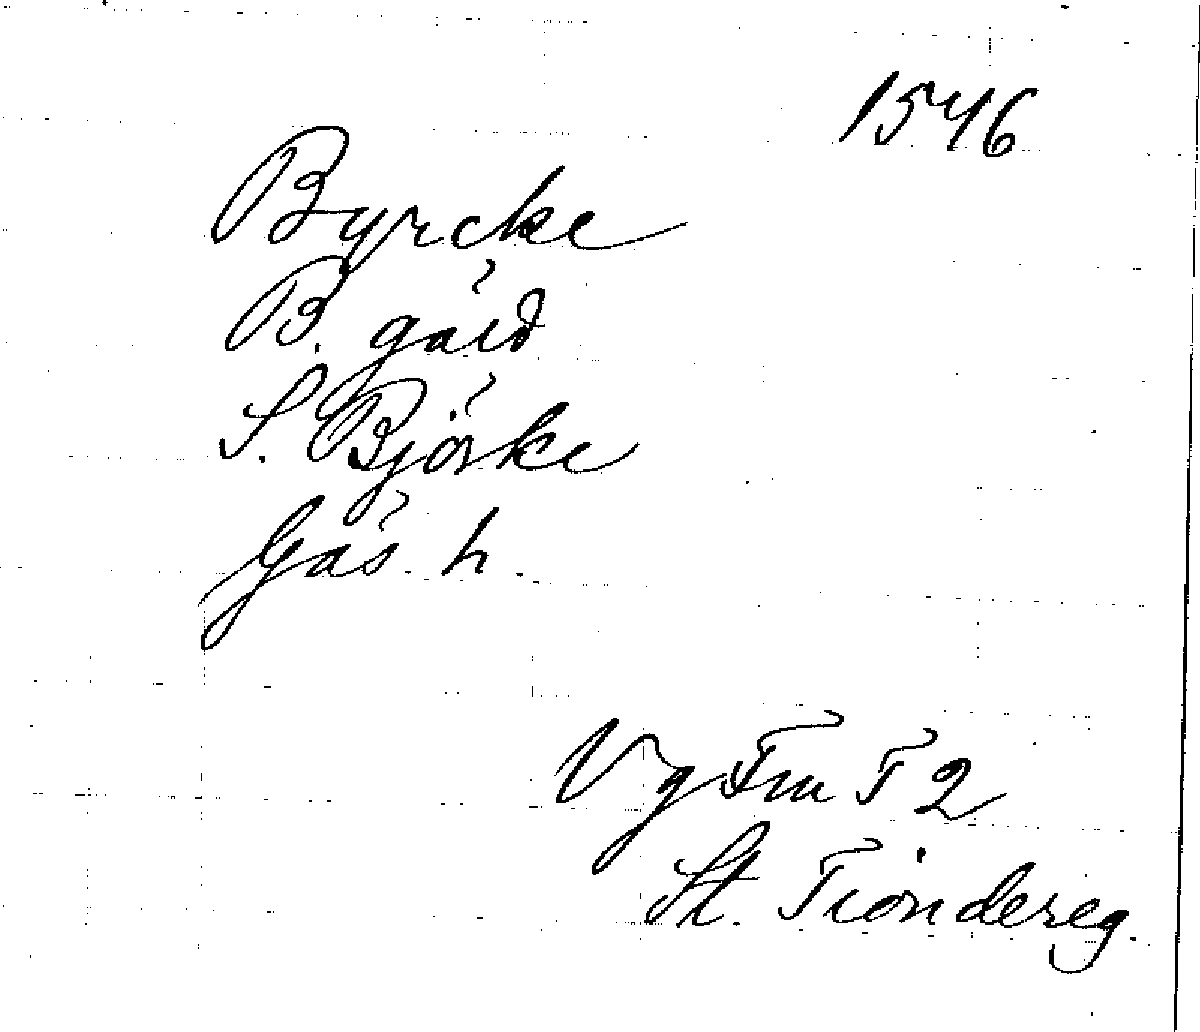 1546
Byrcke
B. gård
S. Björke
Gäs. h.
Vg Fm F 2
St. Tiondereg.